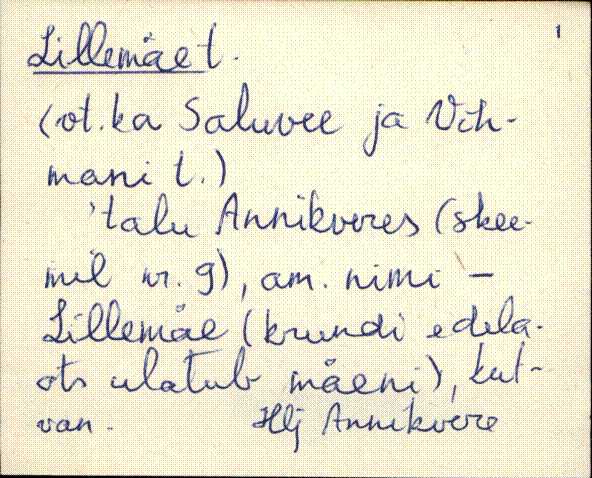 1
Lillemäe t.
(vt. ka Saluvee ja Vih-
mani t.)
'talu Annikveres (skee-
mil nr. 9), am. nimi –
Lillemäe (krundi edela-
ots ulatub mäeni), kut-
van. Hlj Annikvere